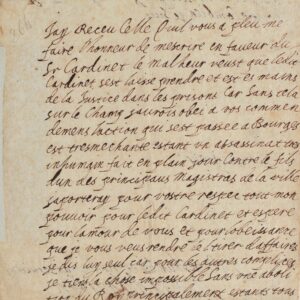 Jay Receu Celle Quil vous a pleu me
faire lhonneur de mescrire en faveur du
Sr Cardinet le malheur veust que ledit
Cardinet sest laisse prendre et est es mains
de la Justice dans les prisons Car Sans cela
sur le Champ jaurois obei a vos commen
demens laction qui sest passee a Bourges
est tresmechante estant un assassinat tres
inhumain fait en plain jour Contre le fils
dun des principaus Magistras de la ville
japorteray pour vostre respec tout mon
pouvoir pour ledit Cardinet et espere
pour lamour de vous et pour lobeissance
que je vous veus rendre le tirer daffaires
je dis luy seul car pour les autres complices
je tiens la chose impossible Sans une aboli
du Roy principalement estants tous